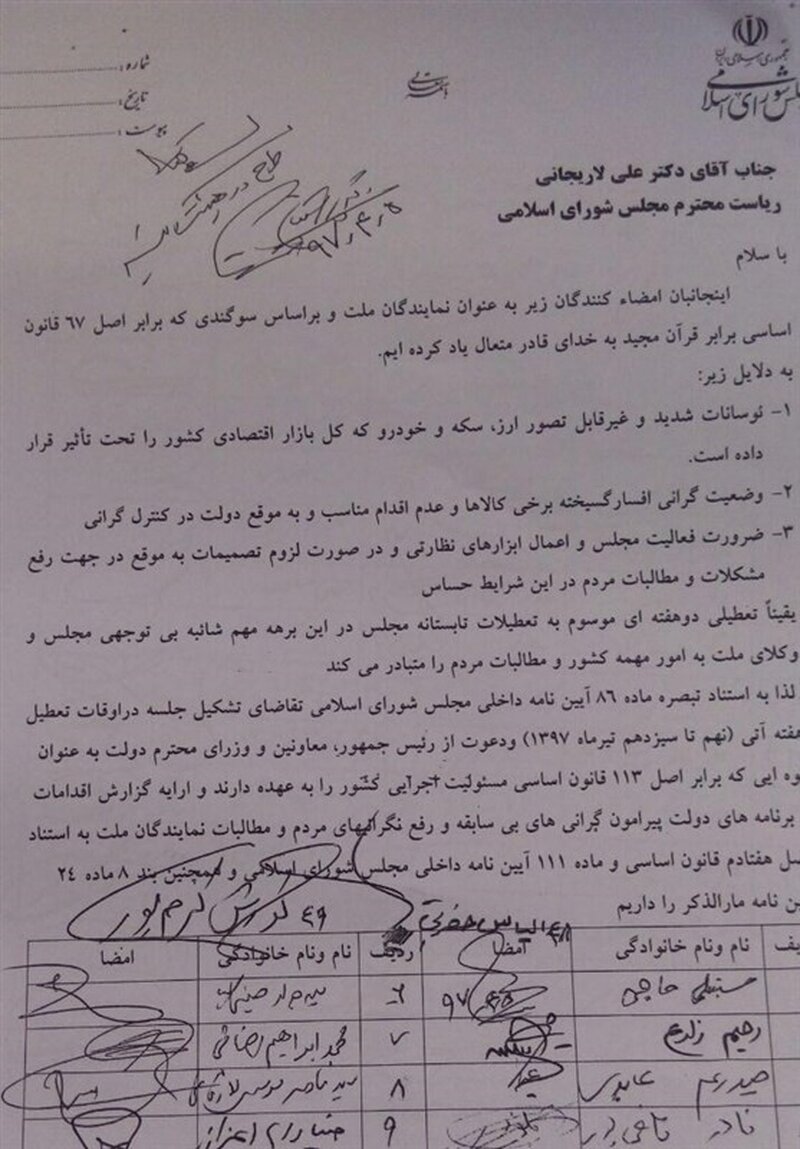 جمهوری اسلامی ایران
مجلس شورای اسلامی
باسمه تعالی
شماره:
تاریخ:
پیوست:
جناب آقای دکتر علی لاریجانی
ریاست محترم مجلس شورای اسلامی
با سلام
اینجانبان امضاء کنندگان زیر به عنوان نمایندگان ملت و براساس سوگندی که برابر اصل ٦٧ قانون
اساسی برابر قرآن مجید به خدای قادر متعال یاد کرده ایم.
به دلایل زیر:
۱- نوسانات شدید و غیرقابل تصور ارز، سکه و خودرو که کل بازار اقتصادی کشور را تحت تأثیر قرار
داده است.
۲- وضعیت گرانی افسارگسیخته برخی کالاها و عدم اقدام مناسب و به موقع دولت در کنترل گرانی
۳- ضرورت فعالیت مجلس و اعمال ابزارهای نظارتی و در صورت لزوم تصمیمات به موقع در جهت رفع
مشکلات و مطالبات مردم در این شرایط حساس
یقیناً تعطیلی دوهفته ای موسوم به تعطیلات تابستانه مجلس در این برهه مهم شائبه بی توجهی مجلس و
وکلای ملت به امور مهمه کشور و مطالبات مردم را متبادر می کند
لذا به استناد تبصره ماده ٨٦ آیین نامه داخلی مجلس شورای اسلامی تقاضای تشکیل جلسه دراوقات تعطیل
هفته آتی (نهم تا سیزدهم تیرماه ۱۳۹۷) ودعوت از رئیس جمهور، معاونین و وزرای محترم دولت به عنوان
وه ایی که برابر اصل ۱۱۳ قانون اساسی مسئولیت اجرایی کشور را به عهده دارند و ارایه گزارش اقدامات
برنامه های دولت پیرامون گرانی های بی سابقه و رفع نگرانیهای مردم و مطالبات نمایندگان ملت به استناد
صل هفتادم قانون اساسی و ماده ۱۱۱ آیین نامه داخلی مجلس شورای اسلامی و همچنین بند ۸ ماده ۲۴
ن نامه مارالذکر را داریم
٤٨ الیاس حضرتی ٤٩ کورش کرم پور
یف نام ونام خانوادگی امضا ردیف نام ونام خانوادگی امضا
حاجی ۹۷ ٦ سید جواد حسینی
رحیم زارع ۷ محمد ابراهیم رضائی
عابدی ۸ سید ناصر موسوی لارگانی
نادر قاضی پور ۹